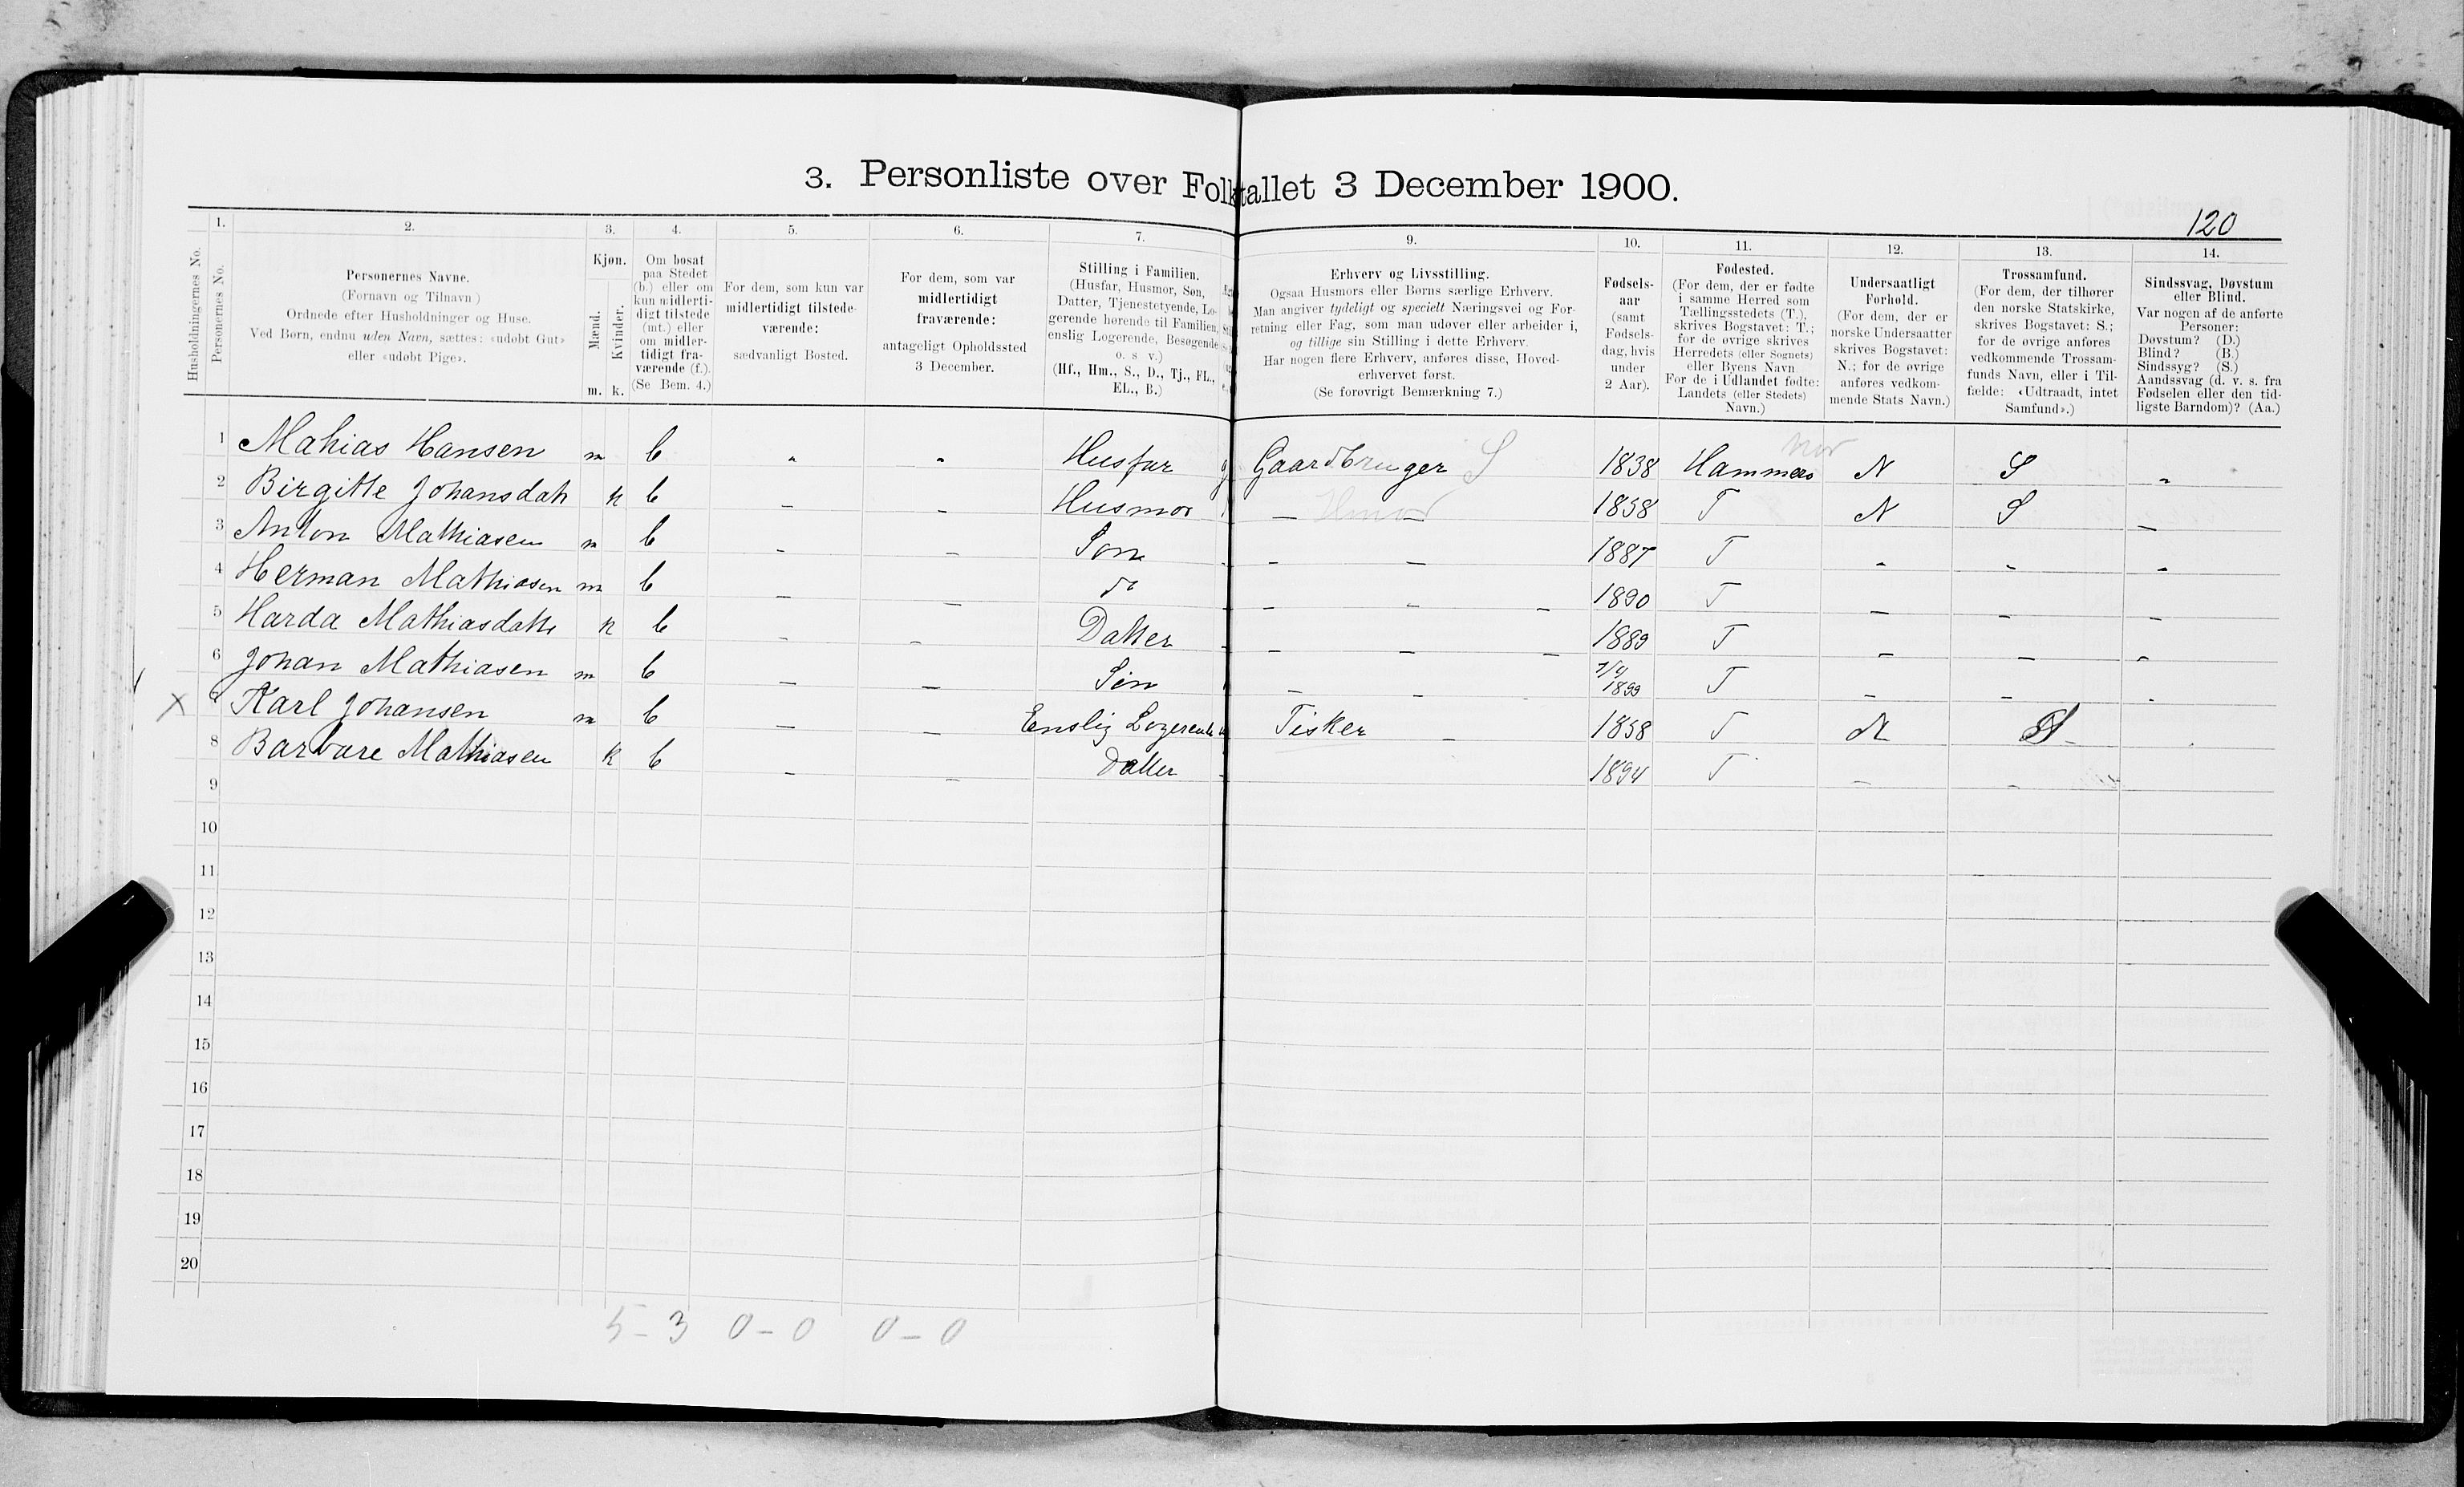 3. Personliste over Folketallet 3 December 1900.
120
1. 2. 3. 4. 5. 6. 7. 9. 10. 11. 12. 13. 14.
Husholdningernes No.
Personernes No.
Personernes Navne.
(Fornavn og Tilnavn.)
Ordnede efter Husholdninger og Huse.
Ved Børn, endnu uden Navn, sættes: «udøbt Gut»
eller «udøbt Pige».
Kjøn.
Mænd.
Kvinder.
m. k.
Om bosat
paa Stedet
(b.) eller om
kun midlerti-
digt tilstede
(mt.) eller
om midler-
tidigt fra-
værende (f.).
(Se Bem. 4.)
For dem, som kun var
midlertidigt tilstede-
værende:
sædvanligt Bosted.
For dem, som var
midlertidigt
fraværende:
antageligt Opholdssted
3 December.
Stilling i Familien.
(Husfar, Husmor, Søn,
Datter, Tjenestetyende, Lo-
gerende hørende til Familien,
enslig Logerende, Besøgende
o. s v.)
(Hf., Hm., S., D., Tj., FL.,
EL., B.)
Erhverv og Livsstilling.
Ogsaa Husmors eller Børns særlige Erhverv.
Man angiver tydeligt og specielt Næringsvei og For-
retning eller Fag, som man udøver eller arbeider i,
og tillige sin Stilling i dette Erhverv.
Har nogen flere Erhverv, anføres disse, Hoved-
erhvervet først.
(Se forøvrigt Bemærkning 7.)
Fødsels-
aar
(samt
Fødsels-
dag, hvis
under
2 Aar).
Fødested.
(For dem, der er fødte
i samme Herred som
Tællingsstedets (T.),
skrives Bogstavet: T.;
for de øvrige skrives
Herredets (eller Sognets)
eller Byens Navn
For de i Udlandet fødte:
Landets (eller Stedets)
Navn.)
Undersaatligt
Forhold.
(For dem, der er
norske Undersaatter
skrives Bogstavet:
N.; for de øvrige
anføres vedkom-
mende Stats Navn.)
Trossamfund.
(For dem, der tilhører
den norske Statskirke,
skrives Bogstavet: S.;
for de øvrige anføres
vedkommende Trossam-
funds Navn, eller i Til-
fælde: «Udtraadt, intet
Samfund».)
Sindssvag, Døvstum
eller Blind.
Var nogen af de anførte
Personer:
Døvstum? (D.)
Blind? (B.)
Sindssyg? (S.)
Aandssvag (d. v. s. fra
Fødselen eller den tid-
ligste Barndom)? (Aa.)
1 Mahias Hansen m b - - Husfar g Gaardbruger S 1838 Hammerø N S -
2 Birgitte Johansdatt k b - - Husmor - Hmor - 1858 T N S -
3 Anton Mathiasen m b - - Søn - - 1887 T - - -
4 Herman Mathiasen m b - - do - - - 1890 T - - -
5 Harda Mathiasdatte k b - - Datter - - - 1889 T - - -
6 Johan Mathiasen m b - - Søn - - - 1899 T - - -
X 7 Karl Johansen m b - - Enslig Logerende Fisker - 1858 T N S
8 Barbare Mathiasen k b - - Datter 1894 T - -
9
10
11
12
13
14
15
16
17
18
19
20
5 - 3 0 - 0 0 - 0